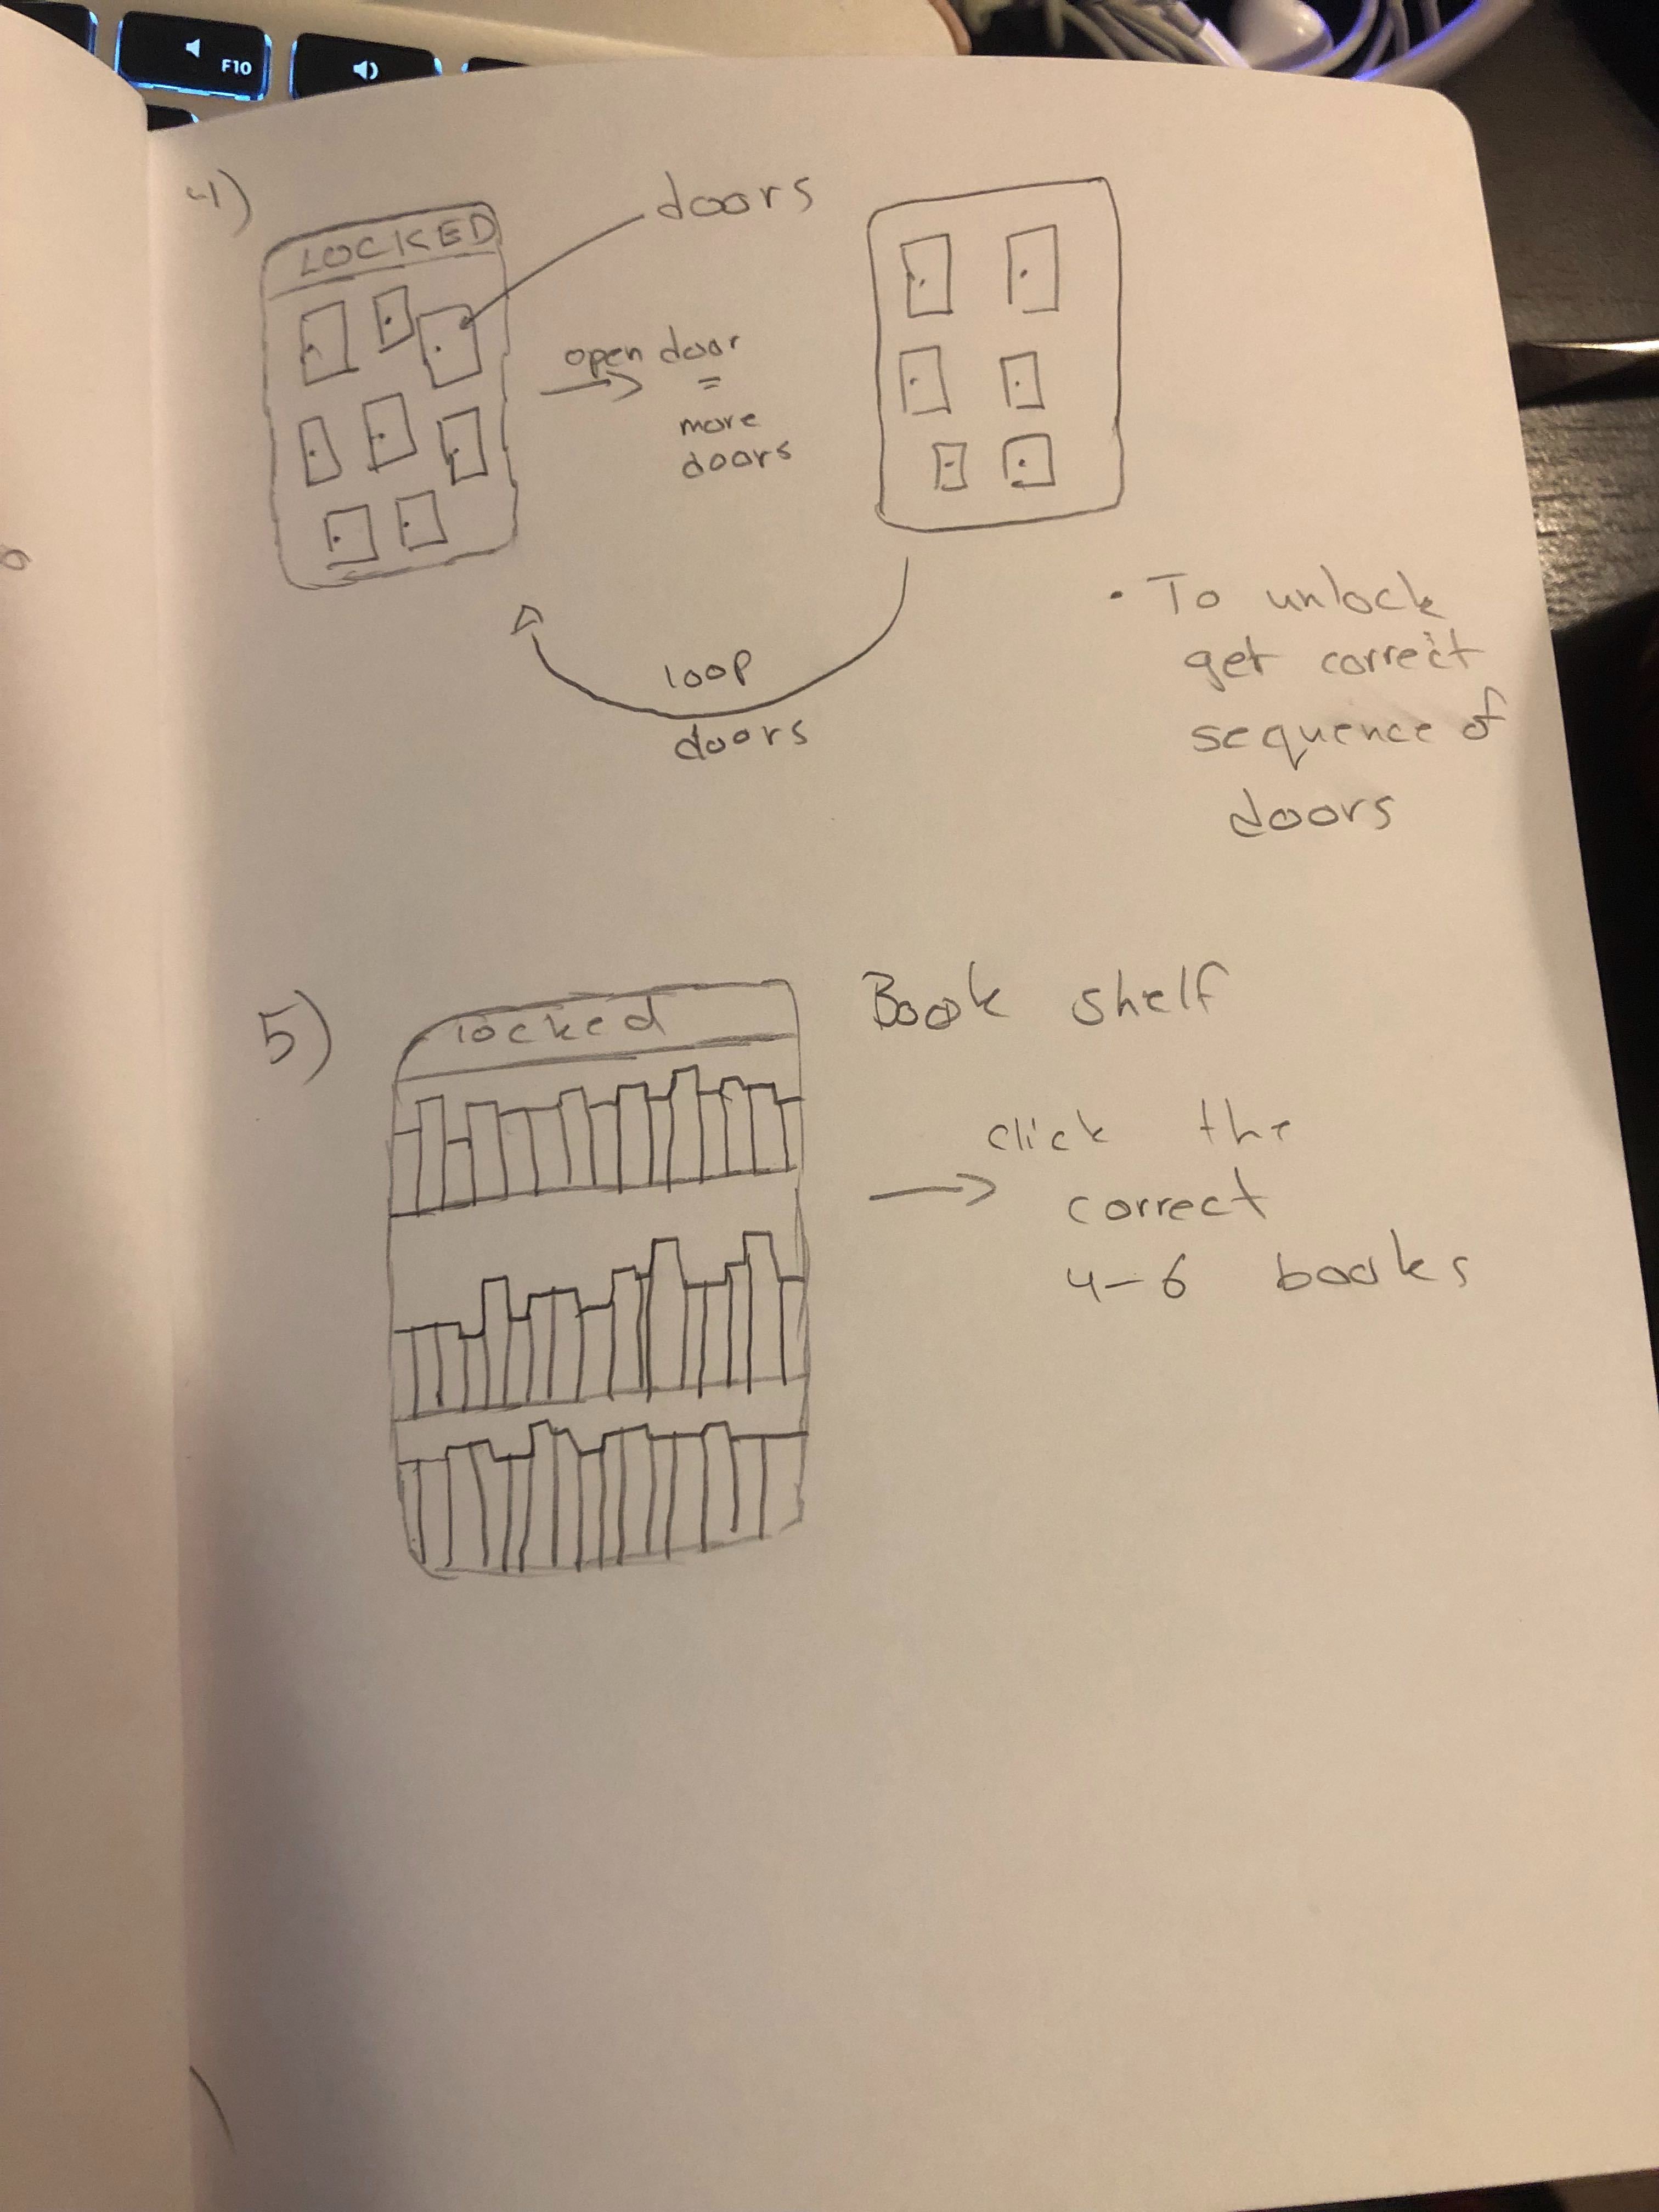 F10
4)
LOCKED
doors
open door
=
more
doors
loop
doors
• To unlock
get correct
sequence of
doors
5)
locked
Book shelf
click the
correct
4-6 books